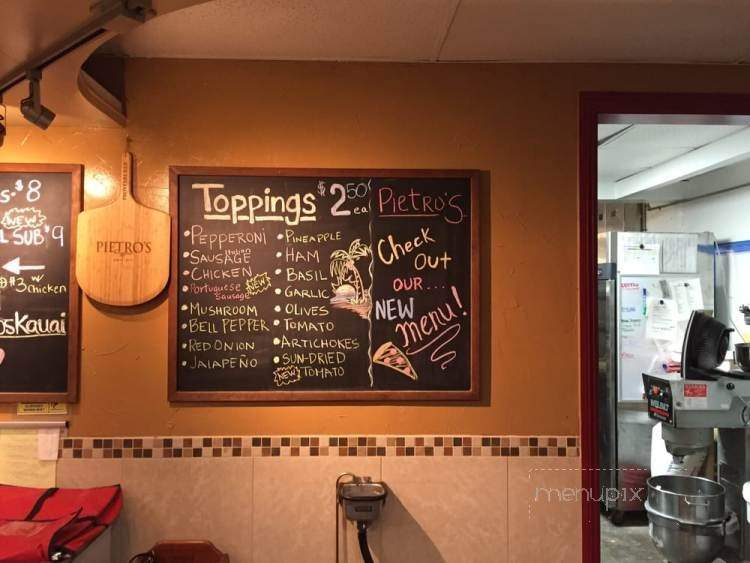 $8
NEW
SUB $9
#3 w/
chicken
osKauai
PIETRO'S
Toppings $2 50 ea
Pepperoni
Sausage Italian
Chicken
Portuguese
Sausage NEW
Mushroom
Bell Pepper
Red Onion
Jalapeño
Pineapple
Ham
Basil
Garlic
Olives
Tomato
Artichokes
Sun-Dried
NEW Tomato
Pietro's
Check
Out
our...
NEW
menu!
menupix